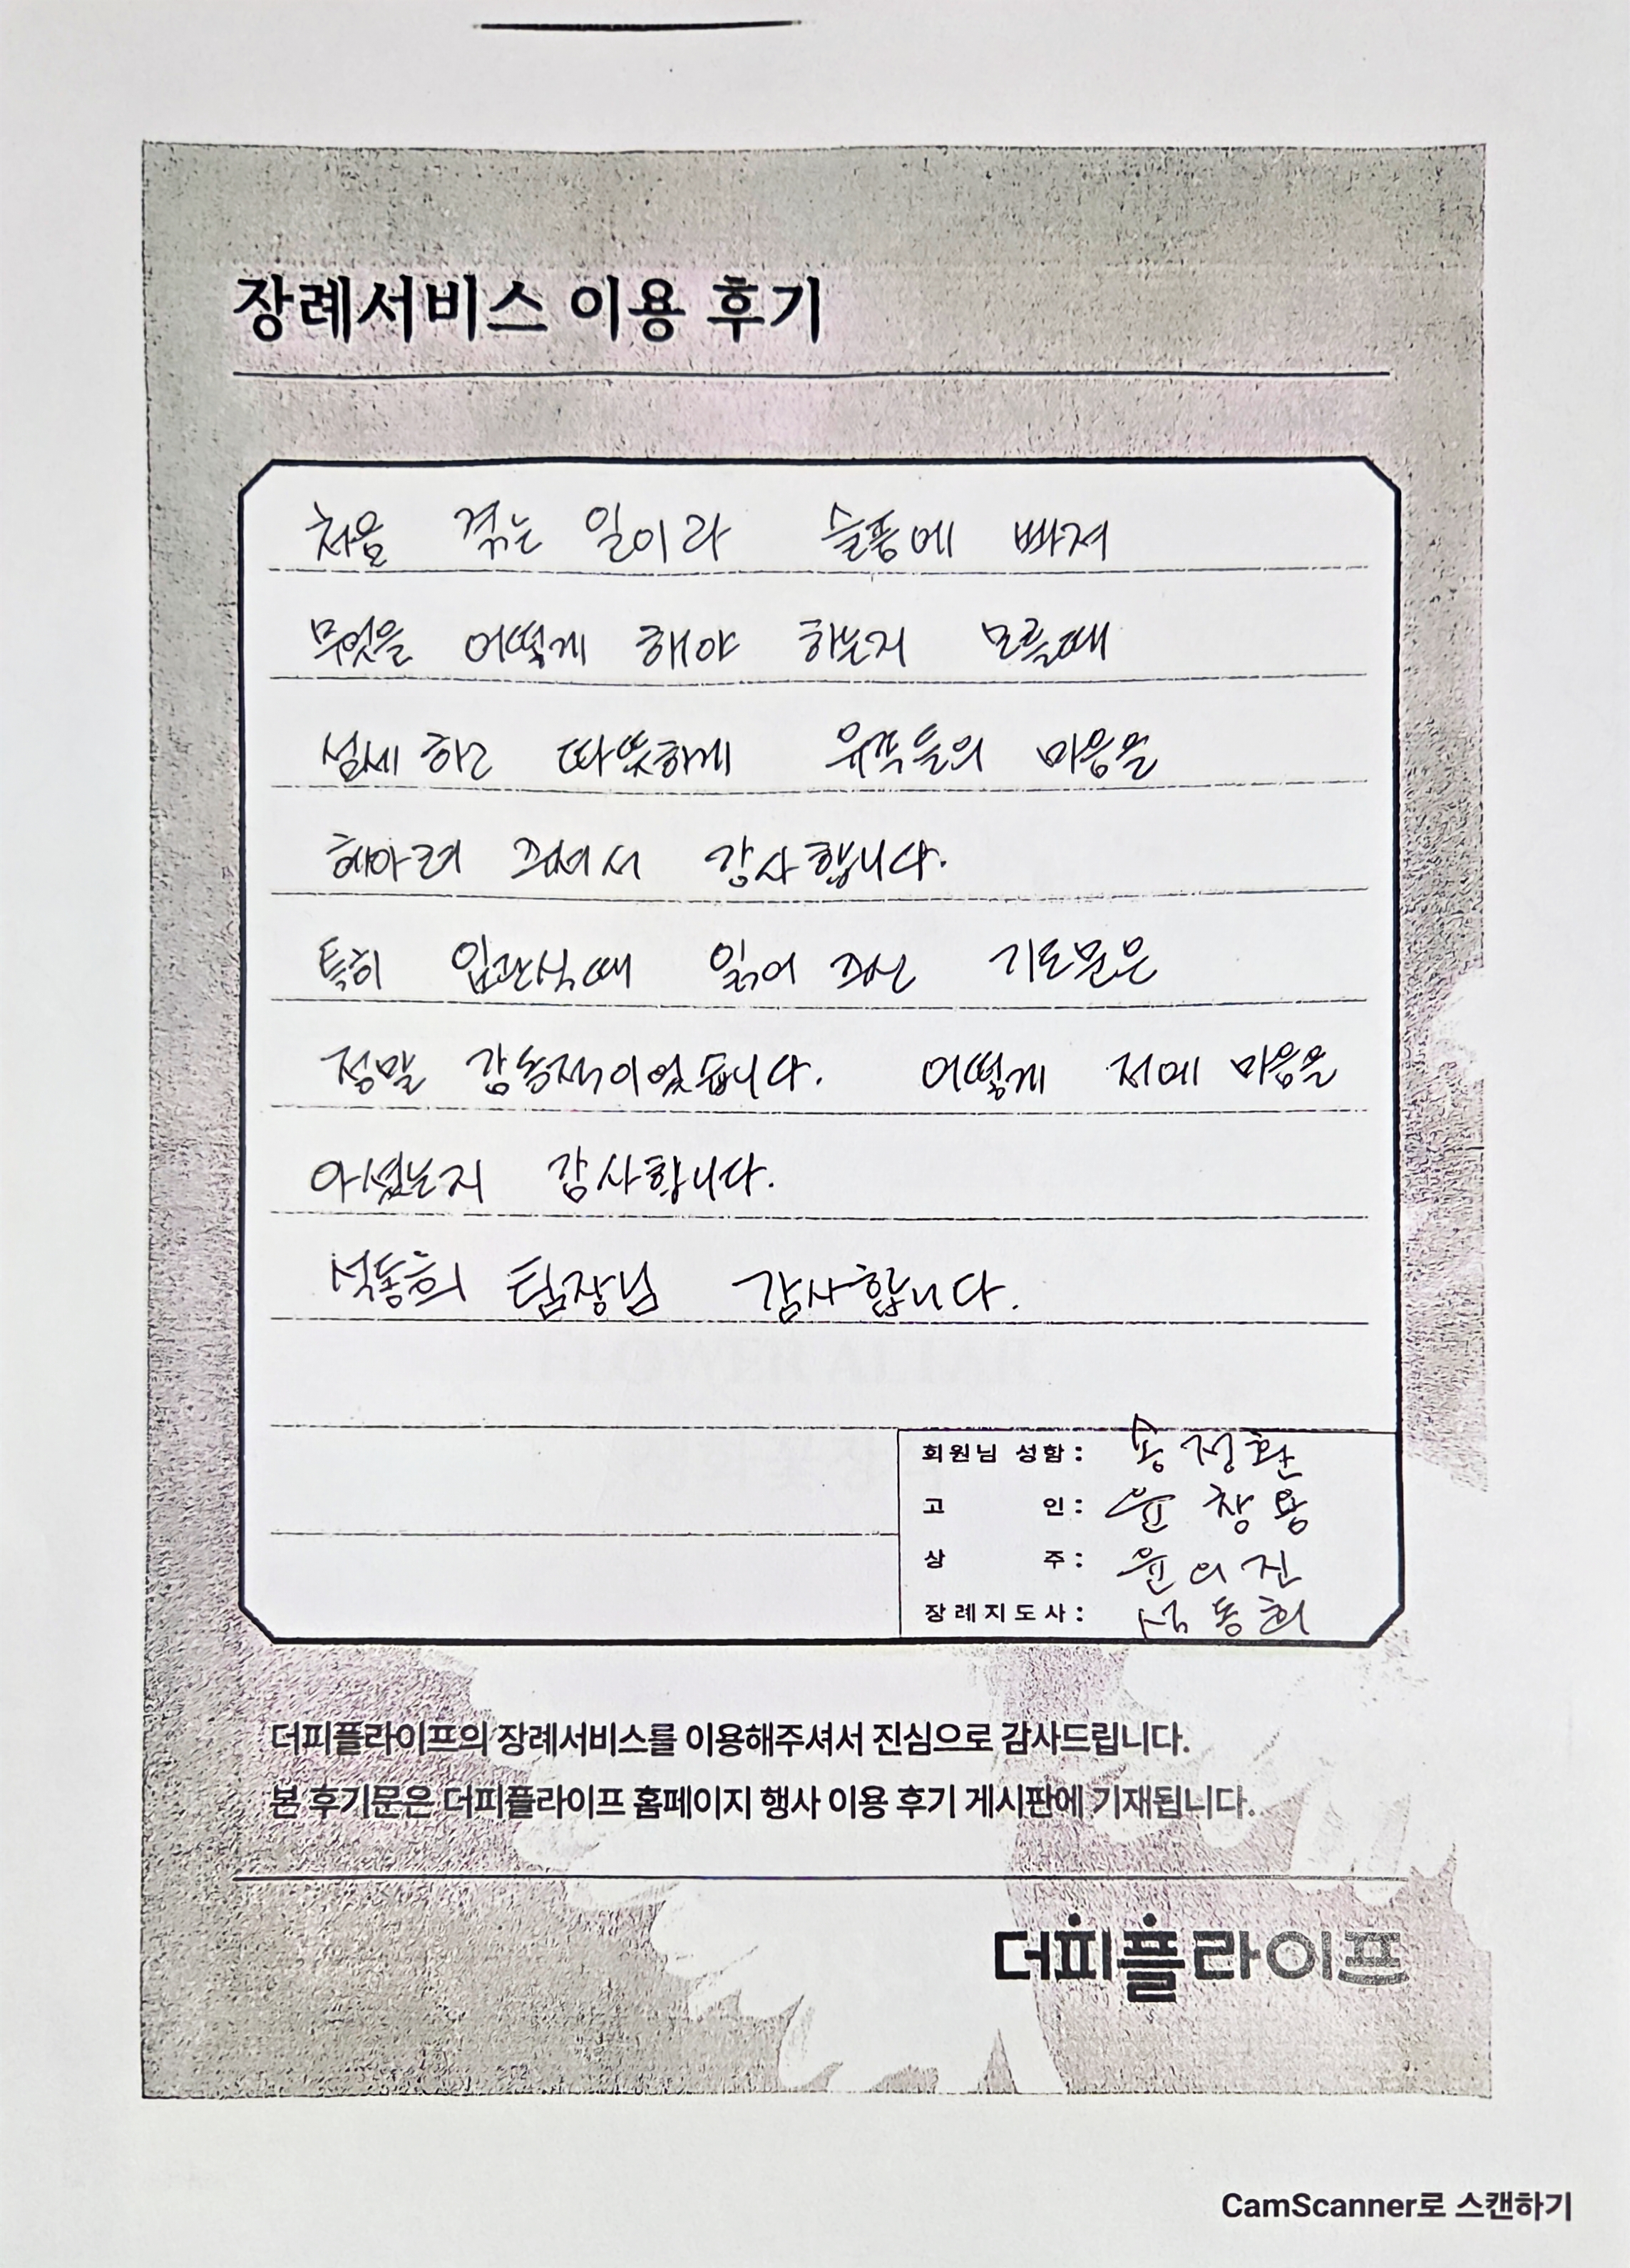 장례서비스 이용 후기
처음 겪는 일이라 슬픔에 빠져
무엇을 어떻게 해야 하는지 모를때
섬세하고 따뜻하게 유족들의 마음을
헤아려 주셔서 감사합니다.
특히 입관식때 읽어 주신 기도문은
정말 감동적이었습니다. 어떻게 저에 마음을
아셨는지 감사합니다.
석동희 팀장님 감사합니다.
회원님 성함: 송정환
고 인: 윤창용
상 주: 윤의진
장례지도사: 석동희
더피플라이프의 장례서비스를 이용해주셔서 진심으로 감사드립니다.
본 후기문은 더피플라이프 홈페이지 행사 이용 후기 게시판에 기재됩니다.
더피플라이프
CamScanner로 스캔하기